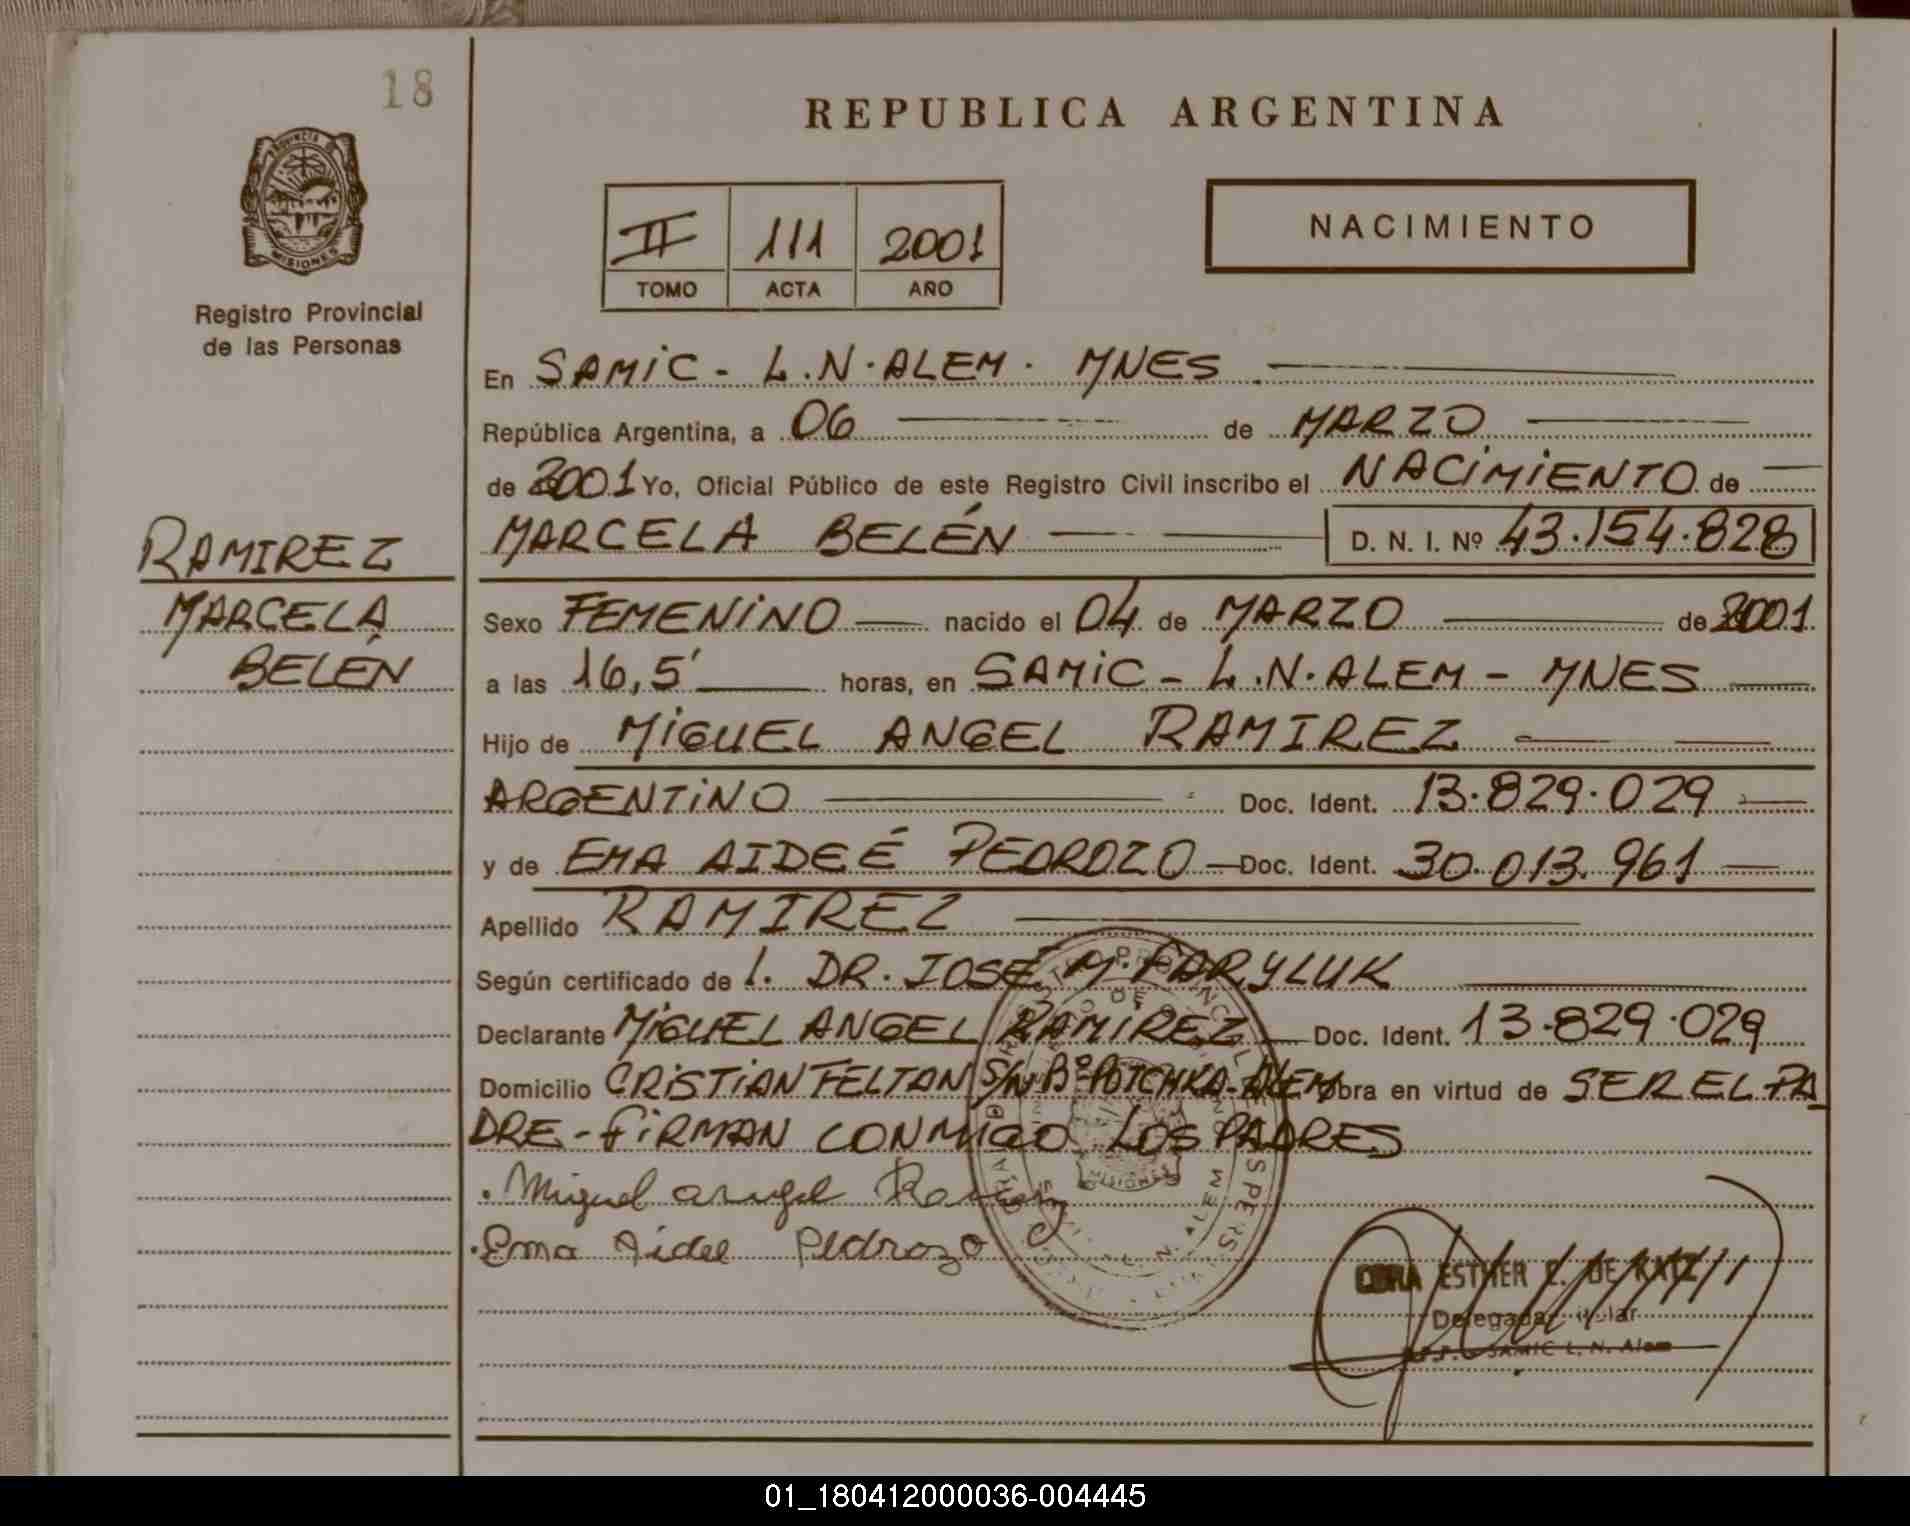 18
REPUBLICA ARGENTINA
PROVINCIA DE
MISIONES
Registro Provincial
de las Personas
II 111 2001
TOMO ACTA AÑO
NACIMIENTO
En SAMiC - L.N.ALEM. MNES
República Argentina, a 06 de MARZO
de 2001 Yo, Oficial Público de este Registro Civil inscribo el NACiMiENTO de
MARCELA BELÉN D. N. I. Nº 43.154.828
RAMIREZ
MARCELA
BELÉN
Sexo FEMENiNO nacido el 04 de MARZO de 2001
a las 16,5' horas, en SAMiC - L.N.ALEM - MNES
Hijo de MiGUEL ANGEL RAMIREZ
ARGENTiNO Doc. Ident. 13.829.029
y de EMA AIDEÉ PEDROZO Doc. Ident. 30.013.961
Apellido RAMIREZ
Según certificado de 1. DR. JOSÉ M. FARYLUK
Declarante MiGUEL ANGEL RAMiREZ Doc. Ident. 13.829.029
Domicilio CRiSTiAN FELTAN S/N Bº POTCHKA-ALEM obra en virtud de SER EL PA
DRE - FiRMAN CONMIGO LOS PADRES
Miguel angel Ramirez
Ema Aidee Pedrozo
ESTHER C. DE
Delegada Titular
SAMIC L. N. Alem
01_180412000036-004445